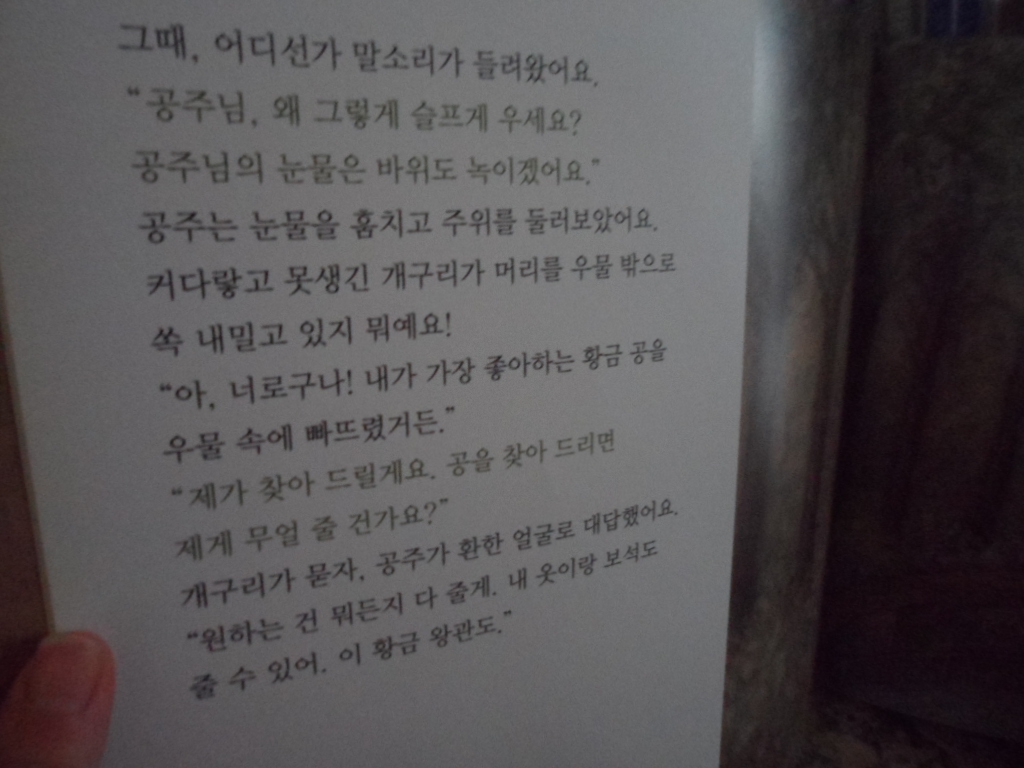 그때, 어디선가 말소리가 들려왔어요.
“공주님, 왜 그렇게 슬프게 우세요?
공주님의 눈물은 바위도 녹이겠어요.”
공주는 눈물을 훔치고 주위를 둘러보았어요.
커다랗고 못생긴 개구리가 머리를 우물 밖으로
쏙 내밀고 있지 뭐예요!
“아, 너로구나! 내가 가장 좋아하는 황금 공을
우물 속에 빠뜨렸거든.”
“제가 찾아 드릴게요. 공을 찾아 드리면
제게 무얼 줄 건가요?”
개구리가 묻자, 공주가 환한 얼굴로 대답했어요.
“원하는 건 뭐든지 다 줄게. 내 옷이랑 보석도
줄 수 있어. 이 황금 왕관도.”